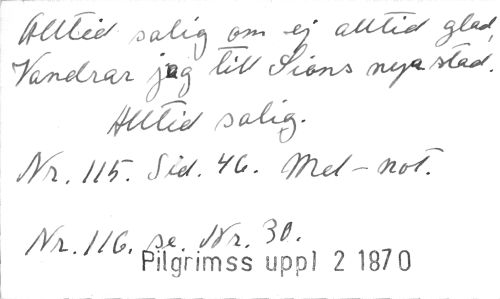 Alltid salig om ej alltid glad,
Vandrar jag till Sions nya stad.
Alltid salig.
Nr. 115. Sid. 46. Mel-not.
Nr. 116. se. Nr. 30.
Pilgrimss uppl 2 1870